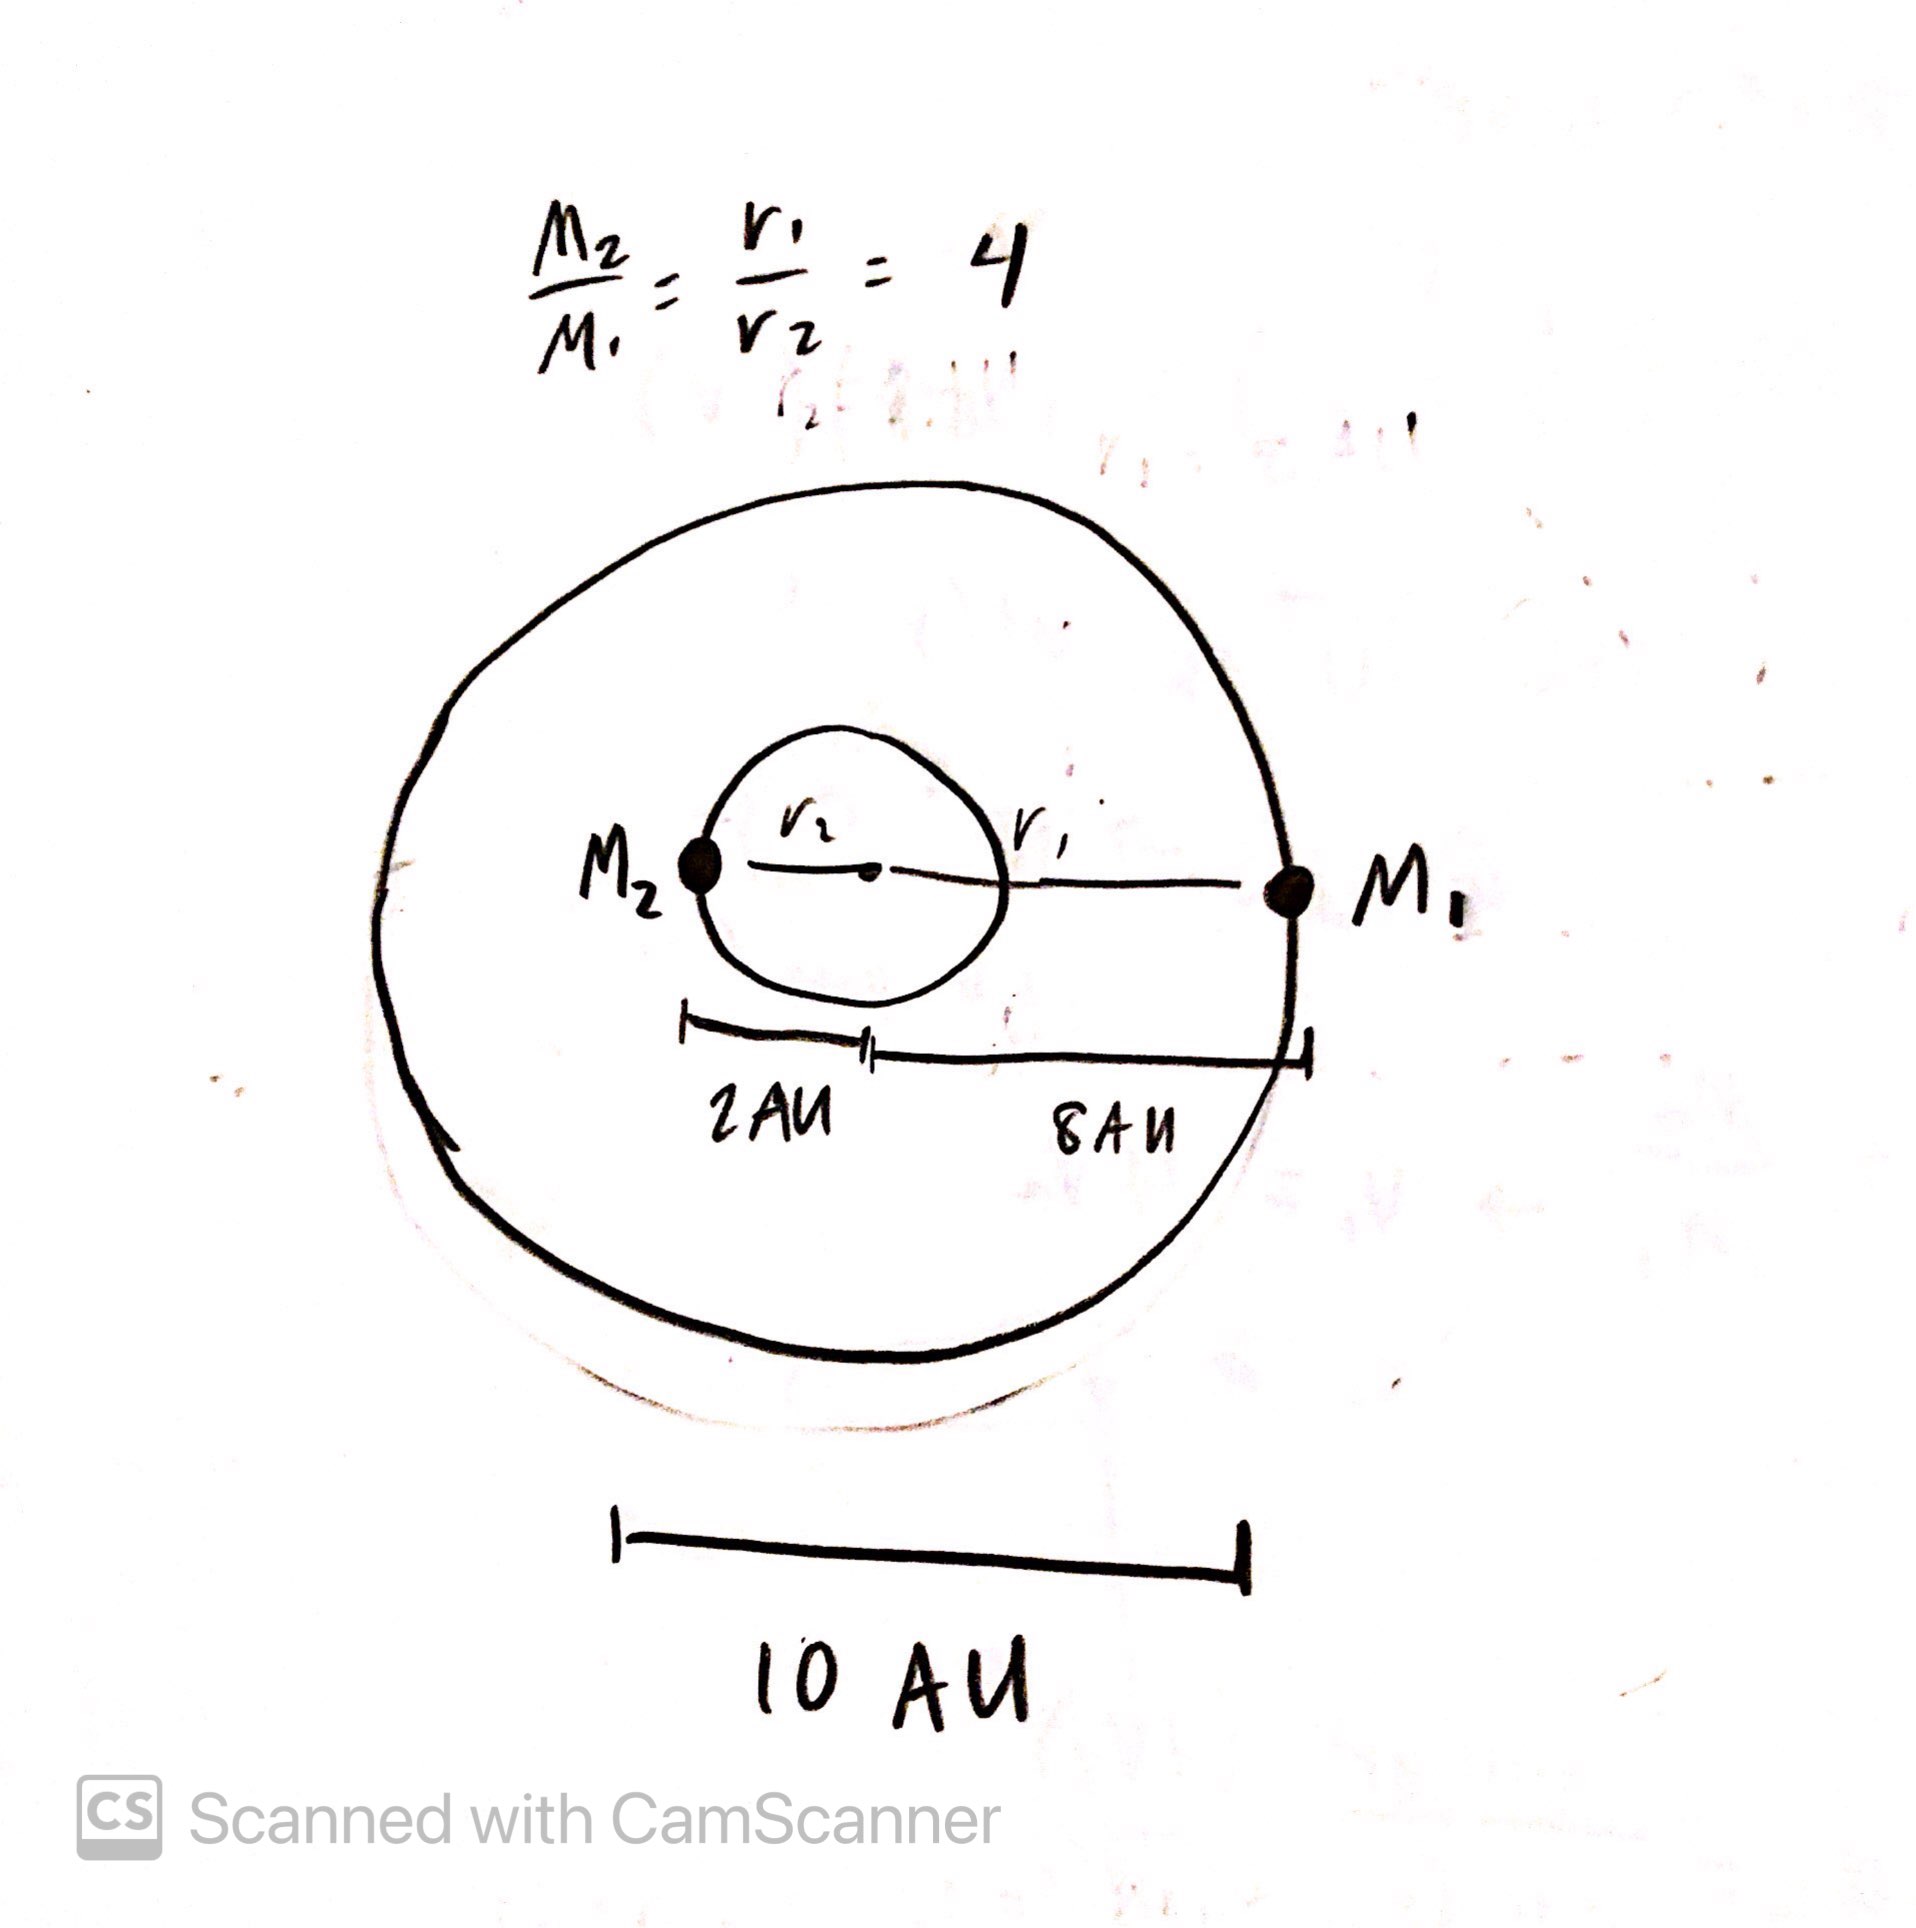 M₂/M₁ = r₁/r₂ = 4
r₂
r₁
M₂
M₁
2AU
8AU
10 AU
CS Scanned with CamScanner